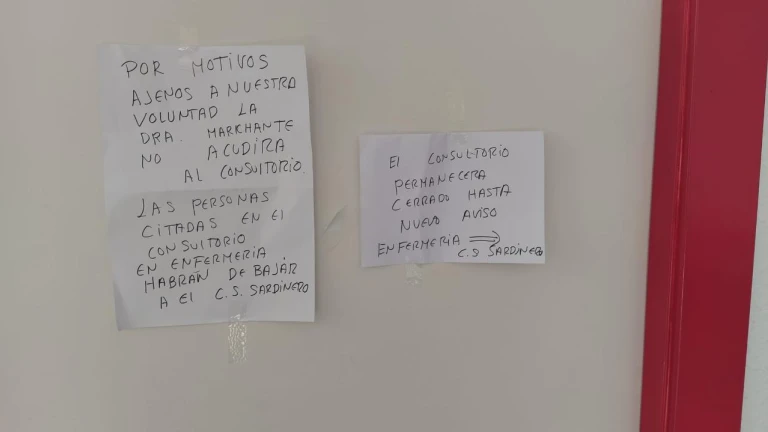 POR MOTIVOS
AJENOS A NUESTRA
VOLUNTAD LA
DRA. MARCHANTE
NO ACUDIRA
AL CONSULTORIO.
LAS PERSONAS
CITADAS EN El
CONSULTORIO
EN ENFERMERIA
HABRAN DE BAJAR
A El C.S. SARDINERO
El CONSULTORIO
PERMANECERA
CERRADO HASTA
NUEVO AVISO
ENFERMERIA ⇒
C.S SARDINERO